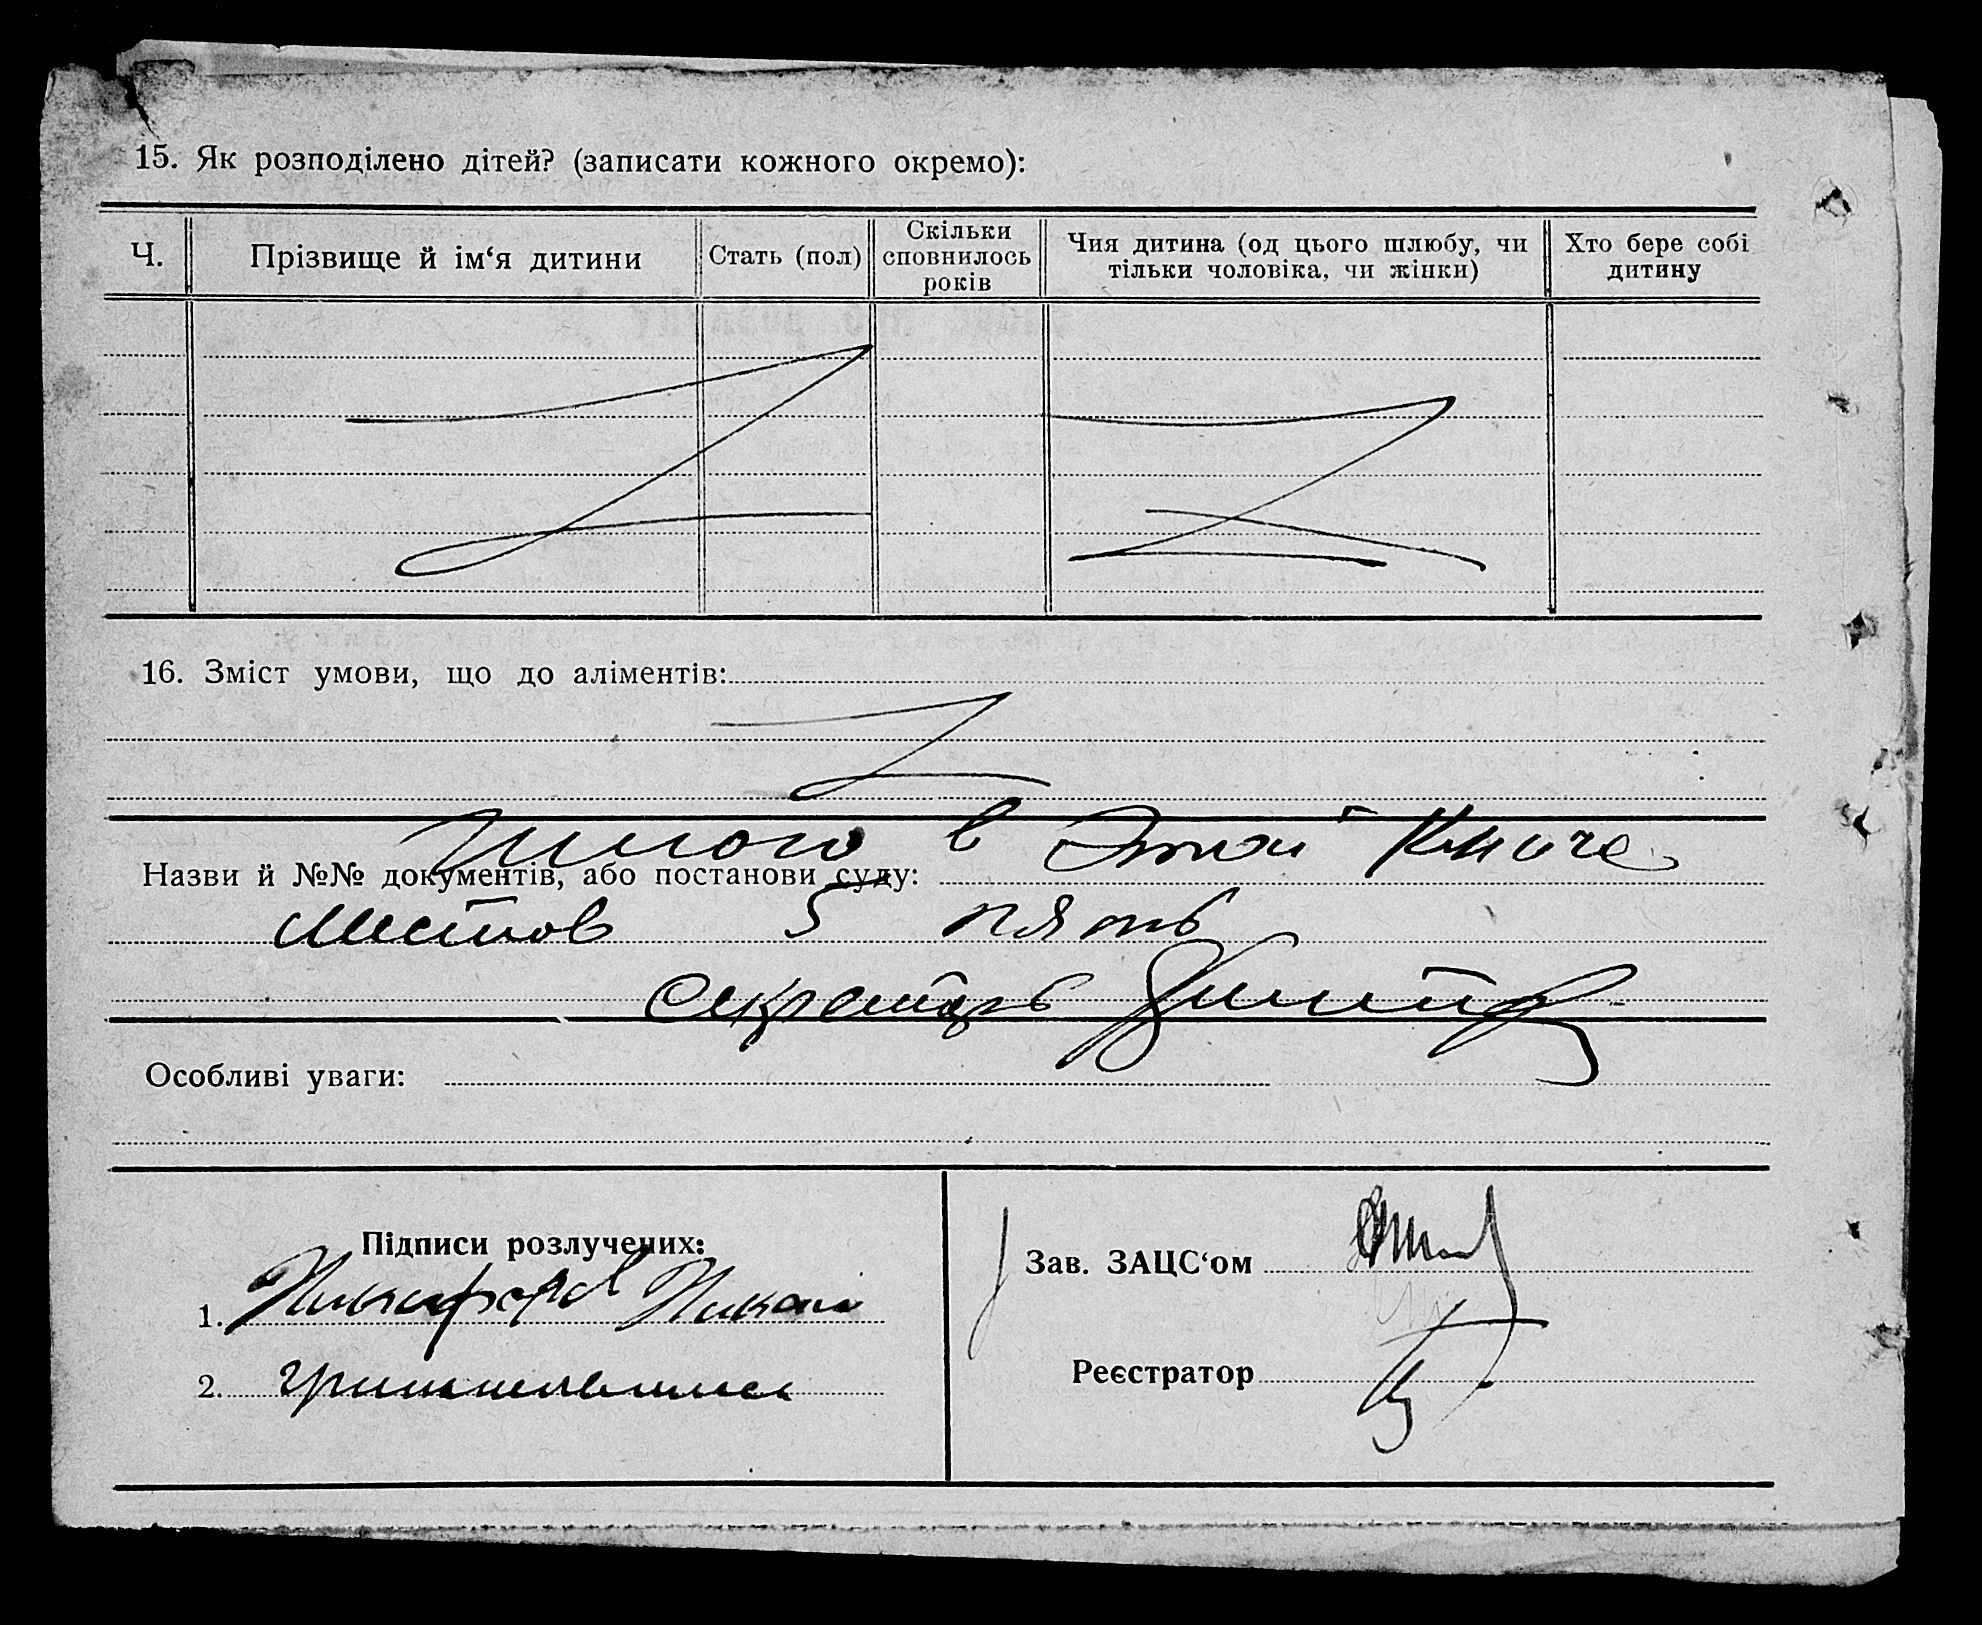 15. Як розподілено дітей? (записати кожного окремо):
Ч.
Прізвище й ім‘я дитини
Стать (пол)
Скільки
сповнилось
років
Чия дитина (од цього шлюбу, чи
тільки чоловіка, чи жінки)
Хто бере собі
дитину
16. Зміст умови, що до аліментів:
в этой Книге
Назви й №№ документів, або постанови суду:
Листов 5 пять
Секретарь
Особливі уваги:
Підписи розлучених:
1. Никифоров
2.
Зав. ЗАЦС‘ом
Реєстратор